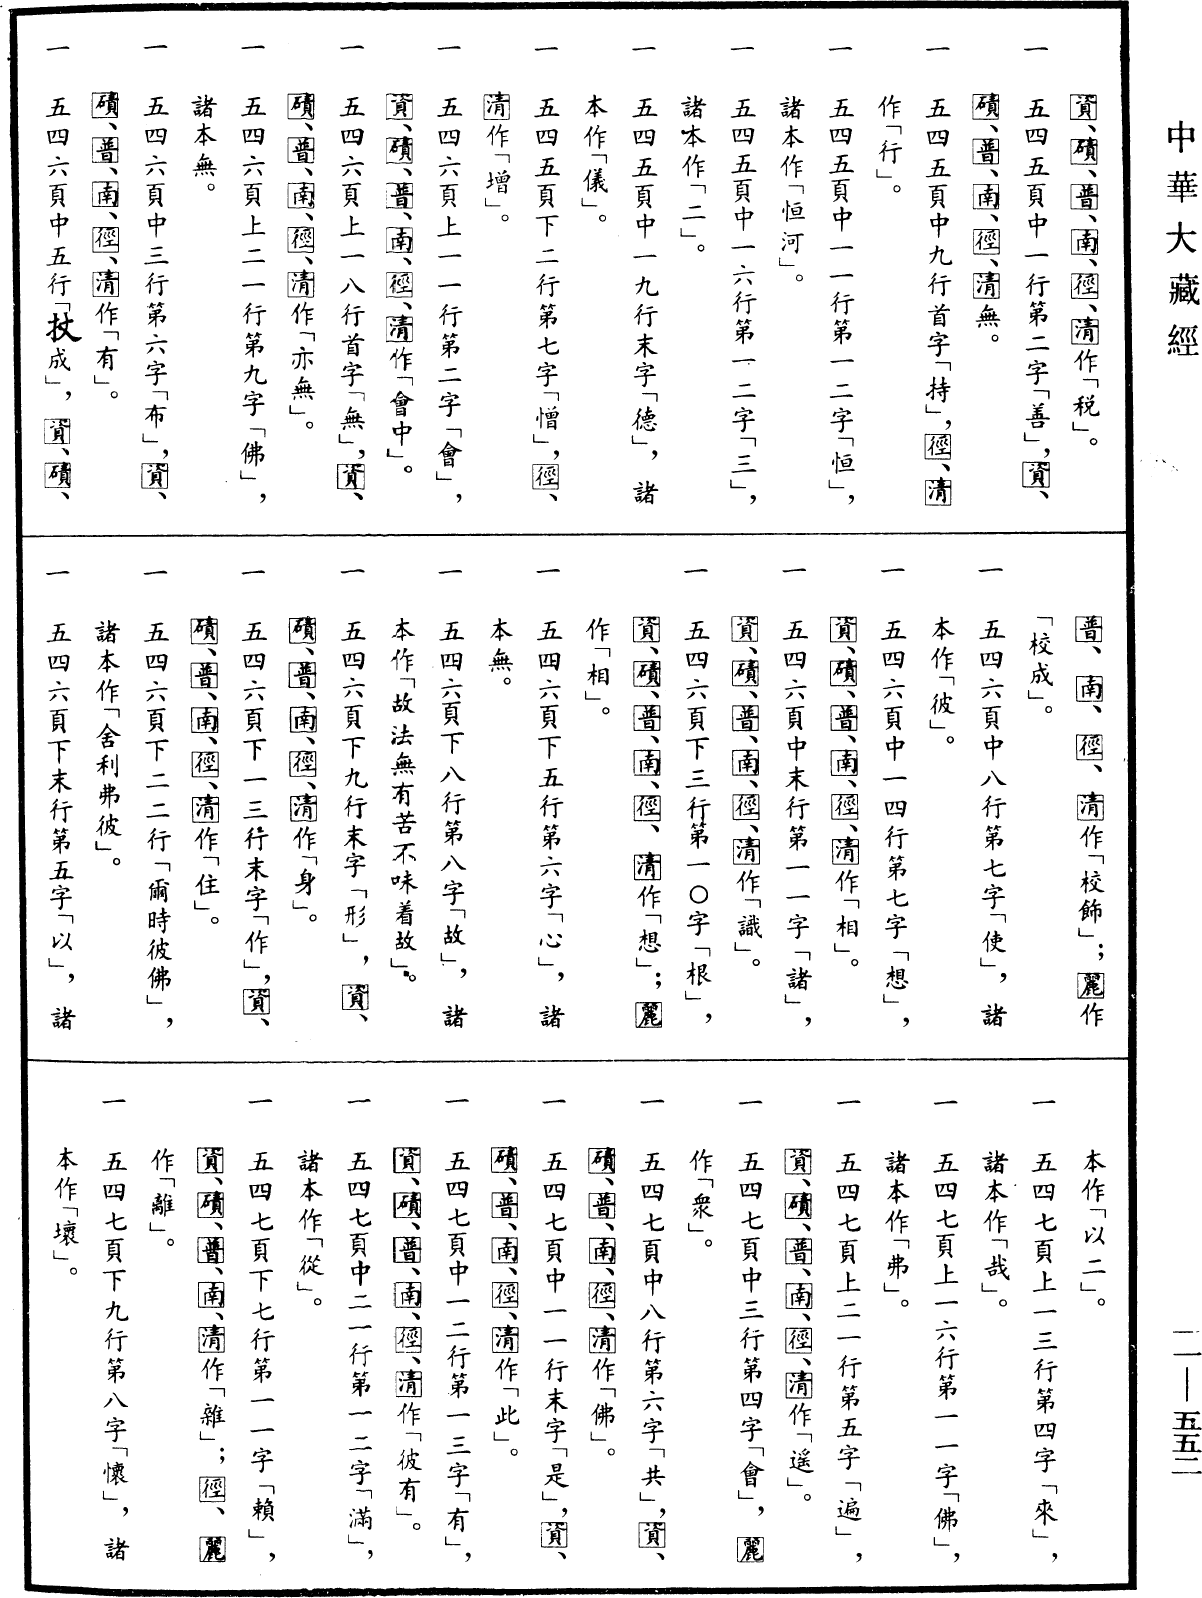 中華大藏經
資、磧、普、南、徑、清作「税」。
一 五四五頁中一行第二字「善」，資、
磧、普、南、徑、清無。
一 五四五頁中九行首字「持」，徑、清
作「行」。
一 五四五頁中一一行第一二字「恒」，
諸本作「恒河」。
一 五四五頁中一六行第一二字「三」，
諸本作「二」。
一 五四五頁中一九行末字「德」，諸
本作「儀」。
一 五四五頁下二行第七字「憎」，徑、
清作「增」。
一 五四六頁上一一行第二字「會」，
資、磧、普、南、徑、清作「會中」。
一 五四六頁上一八行首字「無」，資、
磧、普、南、徑、清作「亦無」。
一 五四六頁上二一行第九字「佛」，
諸本無。
一 五四六頁中三行第六字「布」，資、
磧、普、南、徑、清作「有」。
一 五四六頁中五行「扙成」，資、磧、
普、南、徑、清作「校飾」；麗作
「校成」。
一 五四六頁中八行第七字「使」，諸
本作「彼」。
一 五四六頁中一四行第七字「想」，
資、磧、普、南、徑、清作「相」。
一 五四六頁中末行第一一字「諸」，
資、磧、普、南、徑、清作「識」。
一 五四六頁下三行第一〇字「根」，
資、磧、普、南、徑、清作「想」；麗
作「相」。
一 五四六頁下五行第六字「心」，諸
本無。
一 五四六頁下八行第八字「故」，諸
本作「故法無有苦不味着故」。
一 五四六頁下九行末字「形」，資、
磧、普、南、徑、清作「身」。
一 五四六頁下一三行末字「作」，資、
磧、普、南、徑、清作「住」。
一 五四六頁下二二行「爾時彼佛」，
諸本作「舍利弗彼」。
一 五四六頁下末行第五字「以」，諸
本作「以二」。
一 五四七頁上一三行第四字「來」，
諸本作「哉」。
一 五四七頁上一六行第一一字「佛」，
諸本作「弗」。
一 五四七頁上二一行第五字「遍」，
資、磧、普、南、徑、清作「遥」。
一 五四七頁中三行第四字「會」，麗
作「衆」。
一 五四七頁中八行第六字「共」，資、
磧、普、南、徑、清作「佛」。
一 五四七頁中一一行末字「是」，資、
磧、普、南、徑、清作「此」。
一 五四七頁中一二行第一三字「有」，
資、磧、普、南、徑、清作「彼有」。
一 五四七頁中二一行第一二字「滿」，
諸本作「從」。
一 五四七頁下七行第一一字「賴」，
資、磧、普、南、清作「雜」；徑、麗
作「離」。
一 五四七頁下九行第八字「懷」，諸
本作「壞」。
一一—五五二